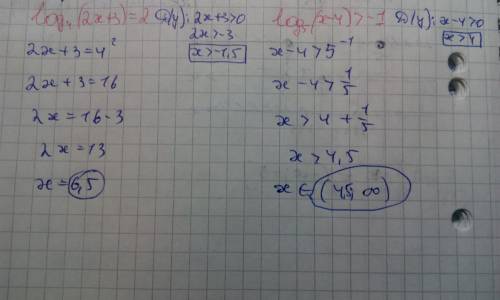 log₄(2x+3)=2 D(y): 2x+3>0
2x>-3
x>-1,5
2x+3=4²
2x+3=16
2x=16-3
2x=13
x=6,5
log₅(x-4)>-1 D(y): x-4>0
x>4
x-4>5⁻¹
x-4>1/5
x>4+1/5
x>4,5
x∈(4,5, ∞)